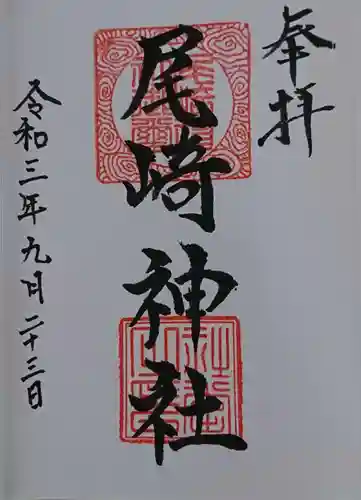 奉拝
尾崎神社
令和三年九月二十三日